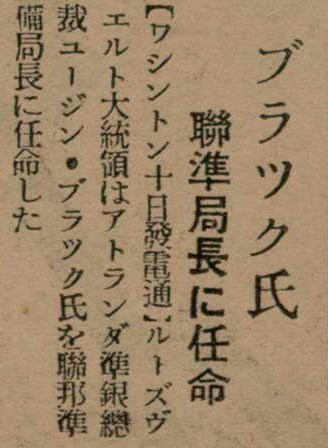 ブラツク氏
聯準局長に任命
【ワシントン十日發電通】ルーズヴ
エルト大統領はアトランダ準銀總
裁ユージン・ブラツク氏を聯邦準
備局長に任命した